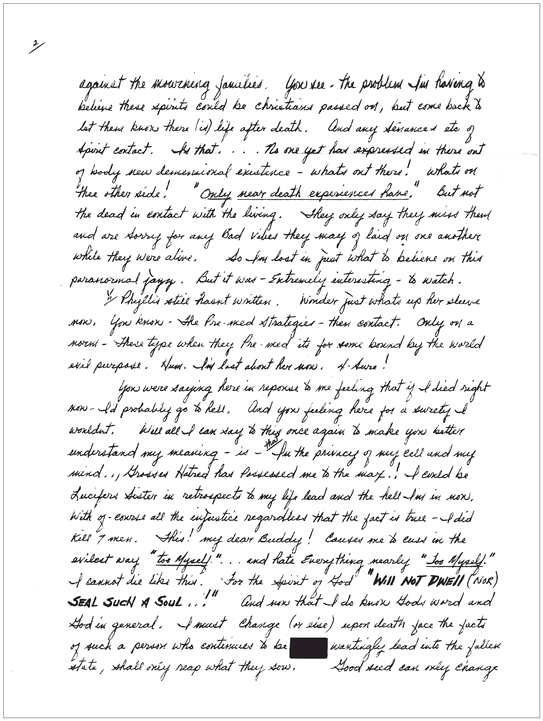 2/
against the mourning families. You see - the problem I'm having to
believe these spirits could be christians passed on, but come back to
let them know there (is) life after death. And any séances etc of
spirit contact. Is that. . . . No one yet has expressed in there out
of body new demensional existence - whats out there! Whats on
thee other side! "Only near death experiences have." But not
the dead in contact with the living. They only say they miss them
and are sorry for any Bad vibes they may of laid on one another
while they were alive. So I'm lost in just what to believe on this
paranormal jazz. But it was - Extremely interesting - to watch.
Phyllis still hasnt written. Wonder just whats up her sleeve
now. You know - The Pre-med Strategies - then contact. Only on a
norm - These type when they Pre-med its for some bound by the world
evil purpose. Hum. I'm lost about her now. 4-Sure!
You were saying here in reponse to me feeling that if I died right
now - I'd probably go to hell. And you feeling here for a surety I
wouldnt. Well all I can say to this once again to make you better
understand my meaning - is - In the privacy of my cell and my
mind.., Grosses Hatred has Possessed me to the max..! I could be
Lucifers Sister in retrospects to my life lead and the hell I'm in now.
With of-course all the injustice regardless that the fact is true - I did
Kill 7 men. This! my dear Buddy! Causes me to cuss in the
evilest way "too Myself." . . . and hate Everything nearly "Too Myself."
I cannot die like this. For the Spirit of God "WILL NOT DWEll (NOR)
SEAL SUCH A SOUL..!" And now that I do know Gods word and
God in general. I must change (or else) upon death face the facts
of such a person who continues to be wantingly lead into the fallen
state, shall only reap what they sow. Good seed can only change